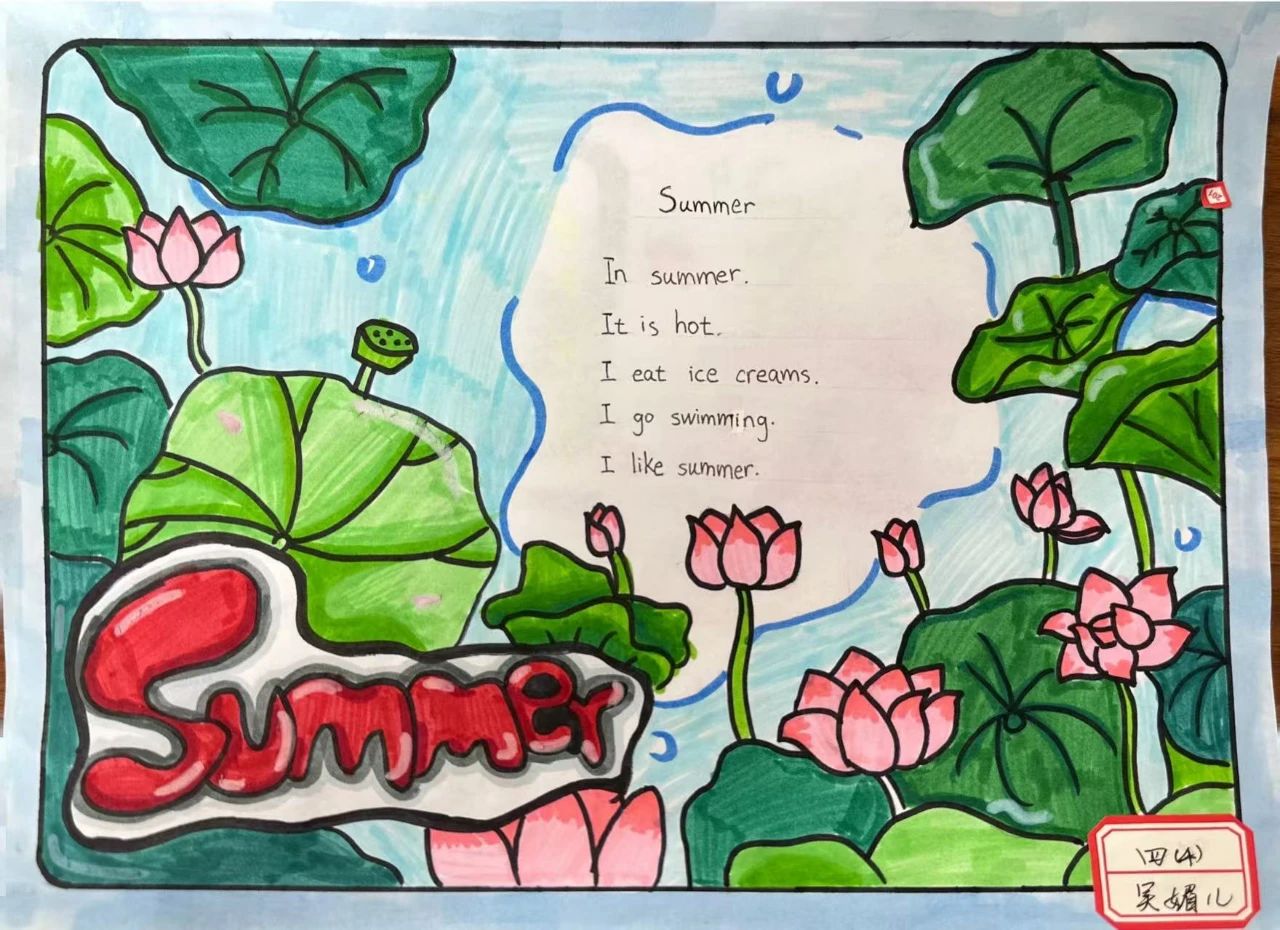 Summer
In summer.
It is hot.
I eat ice creams.
I go swimming.
I like summer.
Summer
四(4)
吴媚儿